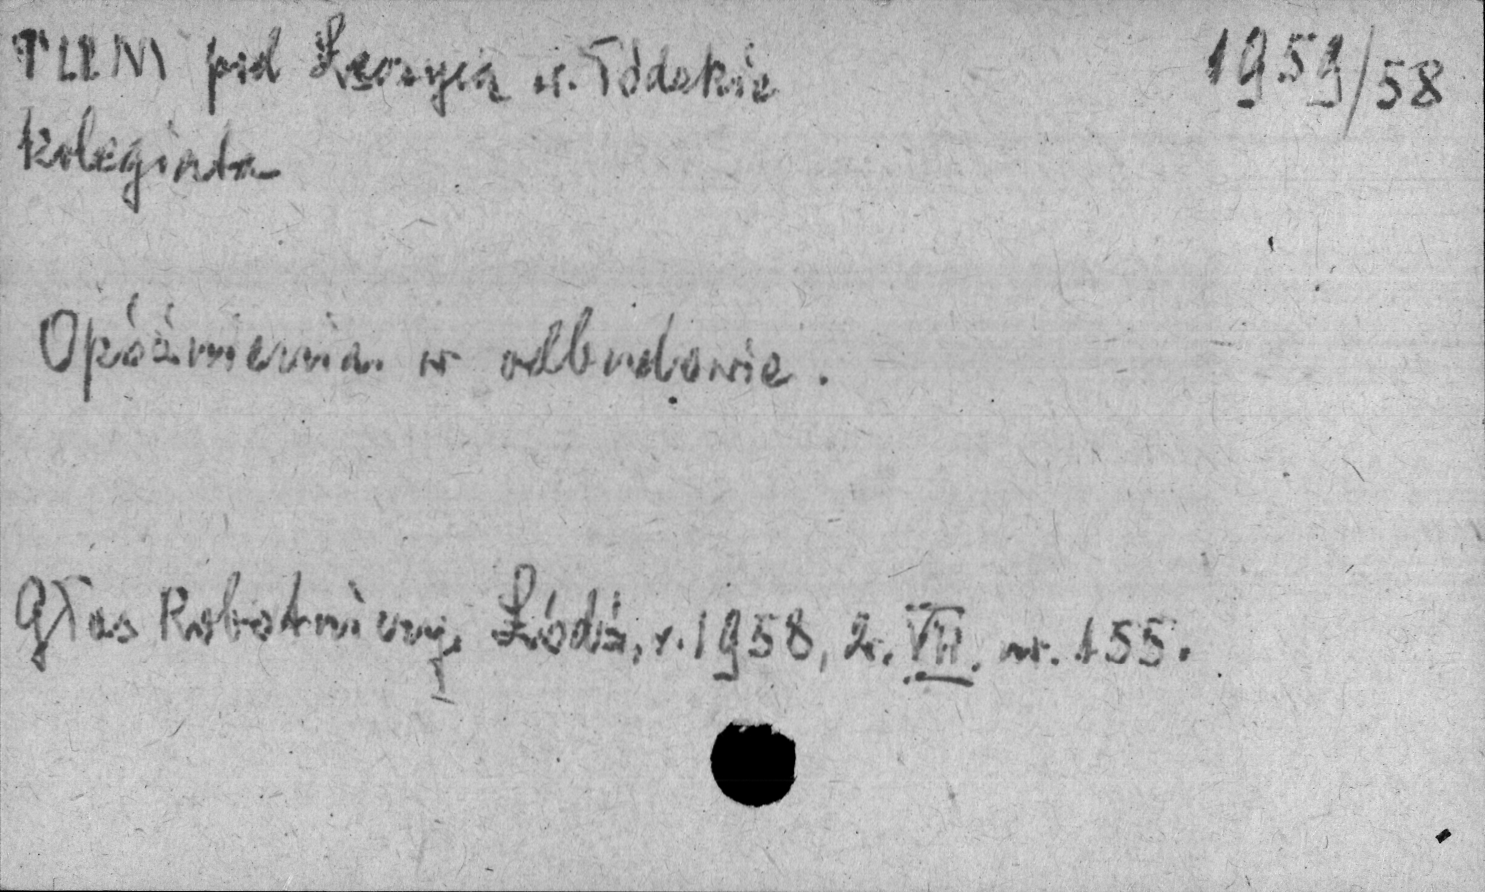 TUM pod Łęczycą w. łódzkie 1959/58
Kolegiata
Opóźnienia w odbudowie.
Głos Robotniczy, Łódź, r. 1958, 2. VII. nr. 155.